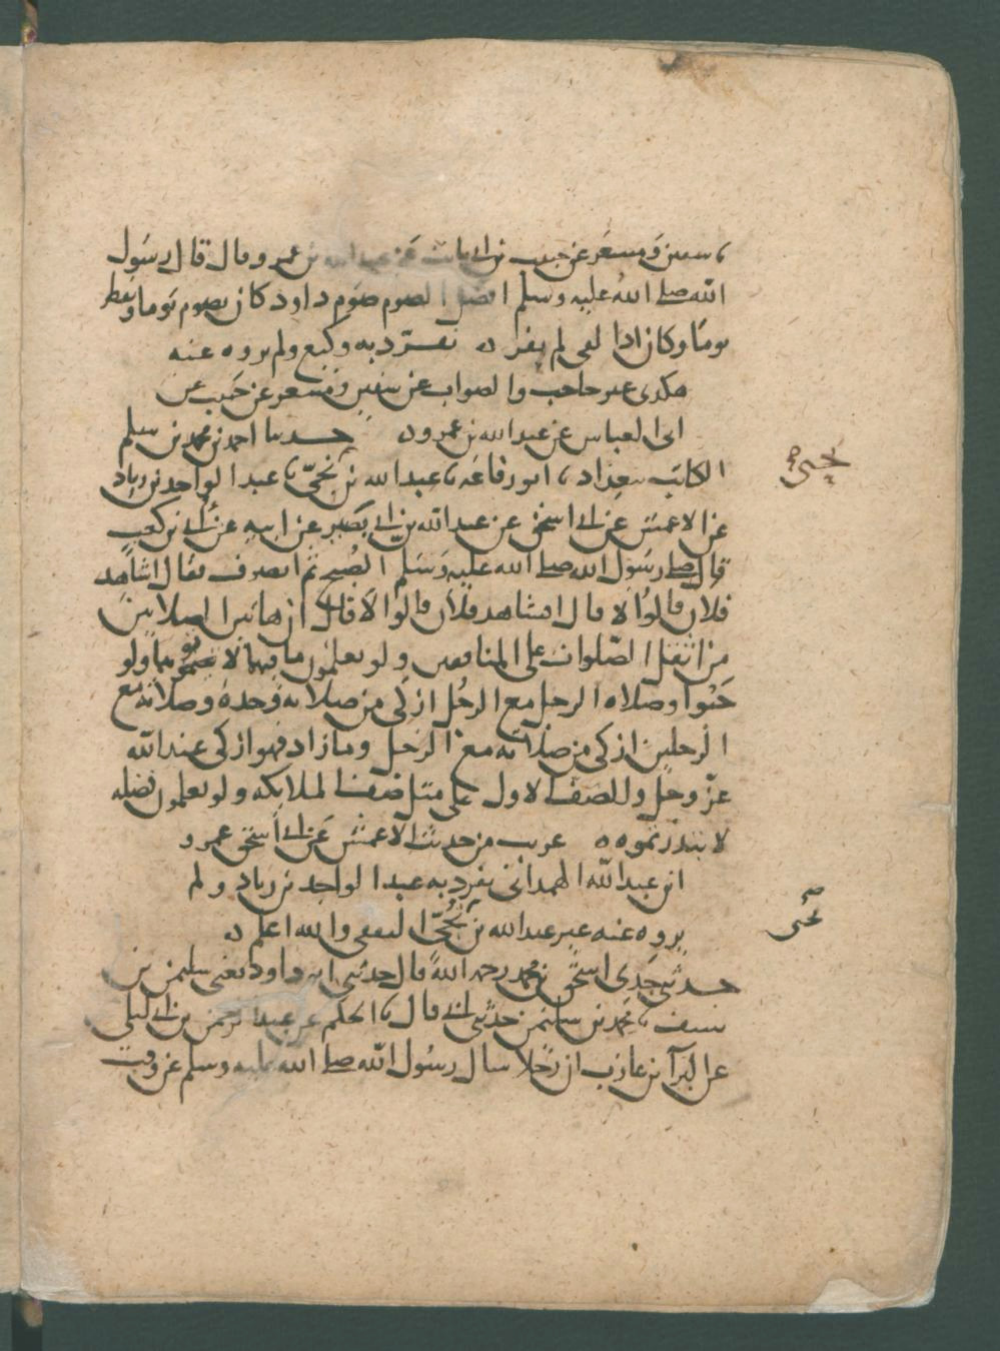 نا سفين ومسعر عن حبيب بن ابي ثابت عن عبد الله بن عمرو قال قال رسول
الله صلى الله عليه وسلم افضل الصوم صوم داود كان يصوم يوما ويفطر
يوما وكان اذا لقى لم يفر ه تفرد به وكيع ولم يروه عنه
هكذى غير حاجب والصواب عن سفين ومسعر عن حبيب عن
ابى العباس عن عبد الله بن عمرو ه حدثنا احمد بن محمد بن سلم
الكاتب ببغداد نا ابو رفاعه نا عبد الله بن نجى نا عبد الواحد بن زياد
عن الاعمش عن ابي اسحق عن عبد الله بن ابي بصير عن ابيه عن ابي بن كعب
قال صلى رسول الله صلى الله عليه وسلم الصبح ثم انصرف فقال اشاهد
فلان قالوا لا قال افشاهد فلان قالوا لا قال ان هاتين الصلاتين
من اثقل الصلوات على المنافقين ولو تعلمون ما فيهما لاتيتموهما ولو
حبوا وصلاه الرجل مع الرجل ازكى من صلاته وحده وصلاته مع
الرجلين ازكى من صلاته مع الرجل وما زاد فهو ازكى عند الله
عز وجل وللصف الاول على مثل صف الملائكه ولو تعلمون فضله
لابتدرتموه ه غريب من حديث الاعمش عن ابي اسحق عمرو
ابن عبد الله الهمدانى تفرد به عبد الواحد بن زياد ولم
يروه عنه غير عبد الله بن نجى الثقفى والله اعلم ه
حدثنى جدى اسحق بن محمد رحمه الله قال حدثنى ابو داود يعنى سليمن بن
سيف نا محمد بن سليمن حدثنى ابي قال نا الحكم عن عبد الرحمن بن ابي ليلى
عن البرآ بن عازب ان رجلا سال رسول الله صلى الله عليه وسلم عن وقت